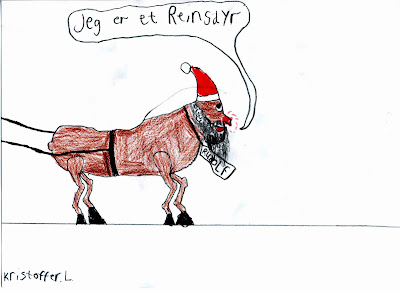 Jeg er et Reinsdyr
RUDOLF
Kristoffer.L.